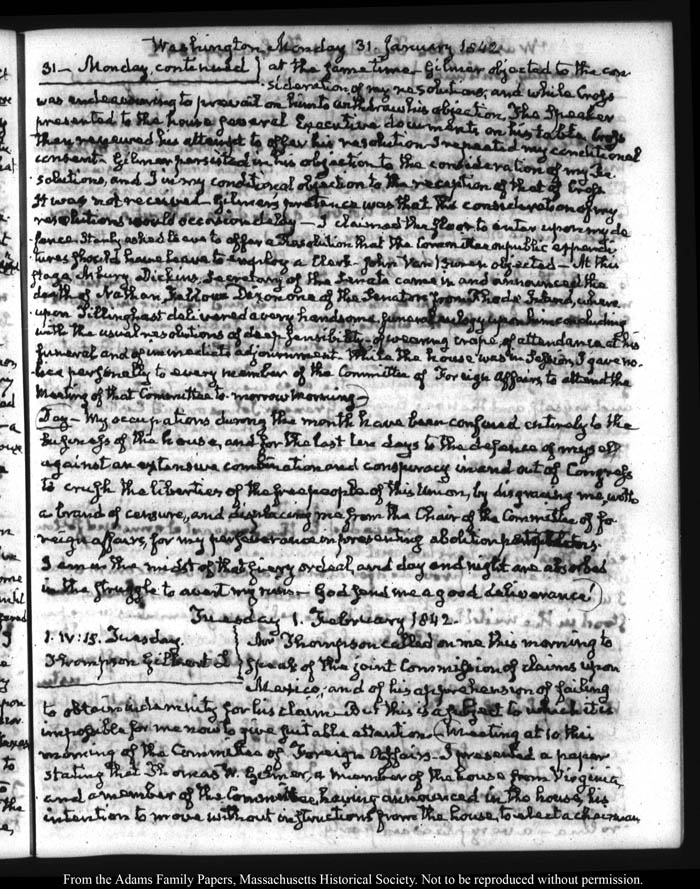 Washington Monday 31. January 1842
31 — Monday continued } at the same time — Gilmer objected to the con-
sideration of my resolutions, and while Cross
was endeavouring to prevail on him to withdraw his objection, The Speaker
presented to the house several Executive documents on his table. Cross
then renewed his attempt to offer his resolution I repeated my conditional
consent — Gilmer persisted in his objection to the consideration of my Re-
solutions, and I in my conditional objection to the reception of that of Cross
It was not received — Gilmer's pretence was that the consideration of my
resolutions would occasion delay — I claimed the floor to enter upon my de-
fence. Stanly asked leave to offer a Resolution that the Committee on public expendi-
tures should have leave to employ a Clerk — John Van Buren objected — At this
stage Asbury Dickins, Secretary of the Senate came in and announced the
death of Nathan Fellows Dixon one of the Senators from Rhode Island, where-
upon Tillinghast delivered a very handsome funeral eulogy upon him concluding
with the usual resolutions of deep sensibility — of wearing crape, of attendance at his
funeral and of immediate adjournment. While the house was in Session, I gave no-
tice personally to every member of the Committee of Foreign Affairs, to attend the
Meeting of that Committee to-morrow morning —
Day — My occupations during the month have been confined entirely to the
business of the house, and for the last ten days to the defence of myself
against an extensive combination and conspiracy in and out of Congress
to crush the liberties of the free people of this Union, by disgracing me with
a brand of censure, and displacing me from the Chair of the Committee of fo-
reign affairs, for my perseverance in presenting abolition petitions.
I am in the midst of that fiery ordeal and day and night are absorbed
in the struggle to avert my ruin — God send me a good deliverance!
Tuesday 1. February 1842.
1. IV:15. Tuesday } Mr Thompson called on me this morning to
Thompson Gilbert L } speak of the joint Commission of claims upon
Mexico, and of his apprehension of failing
to obtain indemnity for his claim — But this is a subject to which it is
impossible for me now to give suitable attention. Meeting at 10 this
morning of the Committee of Foreign Affairs — I presented a paper
stating that Thomas W. Gilmer, a member of the house from Virginia
and a member of the Committee, having announced in the house, his
intention to move without instructions from the house, to elect a chairman
From the Adams Family Papers, Massachusetts Historical Society. Not to be reproduced without permission.